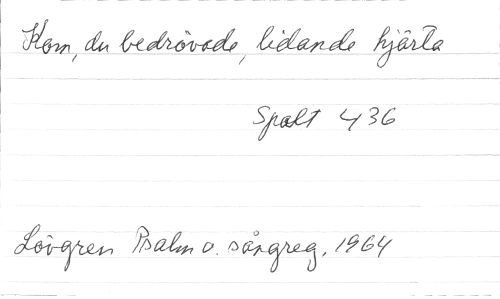 Kom, du bedrövade, lidande hjärta
Spalt 436
Lövgren Psalm o. sångreg. 1964